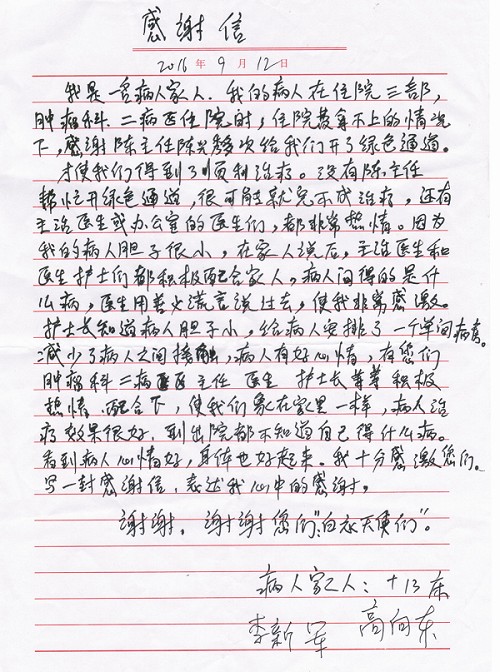 感谢信
2016年9月12日
我是一名病人家人。我的病人在住院三部,
肿瘤科二病区住院时,住院费拿不上的情况
下,感谢陈主任陈多次给我们开了绿色通道。
才使我们得到了顺利治疗。没有陈主任
帮忙开绿色通道,很可能就完不成治疗,还有
主治医生或办公室的医生们,都非常热情。因为
我的病人胆子很小,在家人说后,主治医生和
医生护士们都积极配合家人。病人问得的是什
么病,医生用善义谎言说过去,使我非常感激。
护士长知道病人胆子小,给病人安排了一个单间病房。
减少了病人之间接触,病人有好心情,在您们
肿瘤科二病区主任医生护士长等等积极
热情配合下,使我们象在家里一样,病人治
疗效果很好,到出院都不知道自己得什么病。
看到病人心情好,身体也好起来。我十分感激您们。
写一封感谢信,表述我心中的感谢。
谢谢,谢谢您们"白衣天使们"。
病人家人:+13床
李新军 高向东